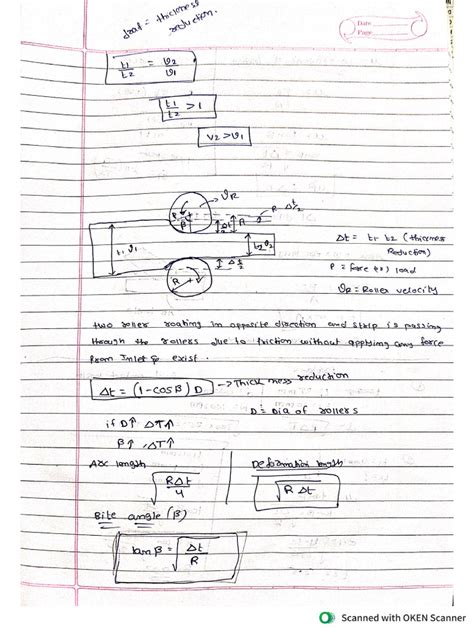 goal = thickness
reduction.
Date
Page
t1/t2 = v2/v1
t1/t2 > 1
v2 > v1
VR
R Δt/2
P
β
R
Δt/2
t1 v1
t2 v2
Δt/2
R
Δt = t1 t2 (thickness
Reduction)
P = force (or) load
VR = Roller velocity
two roller roating in opposite direction and strip is passing
through the rollers due to friction without applying any force
from Inlet & exist.
Δt = (1-cosβ) D → Thick ness reduction
D = Dia of rollers
if D↑ ΔT↑
β↑ ΔT↑
Arc length
√(RΔt/4)
Deformation length
√(R Δt)
Bite angle (β)
tan β = √(Δt/R)
Scanned with OKEN Scanner